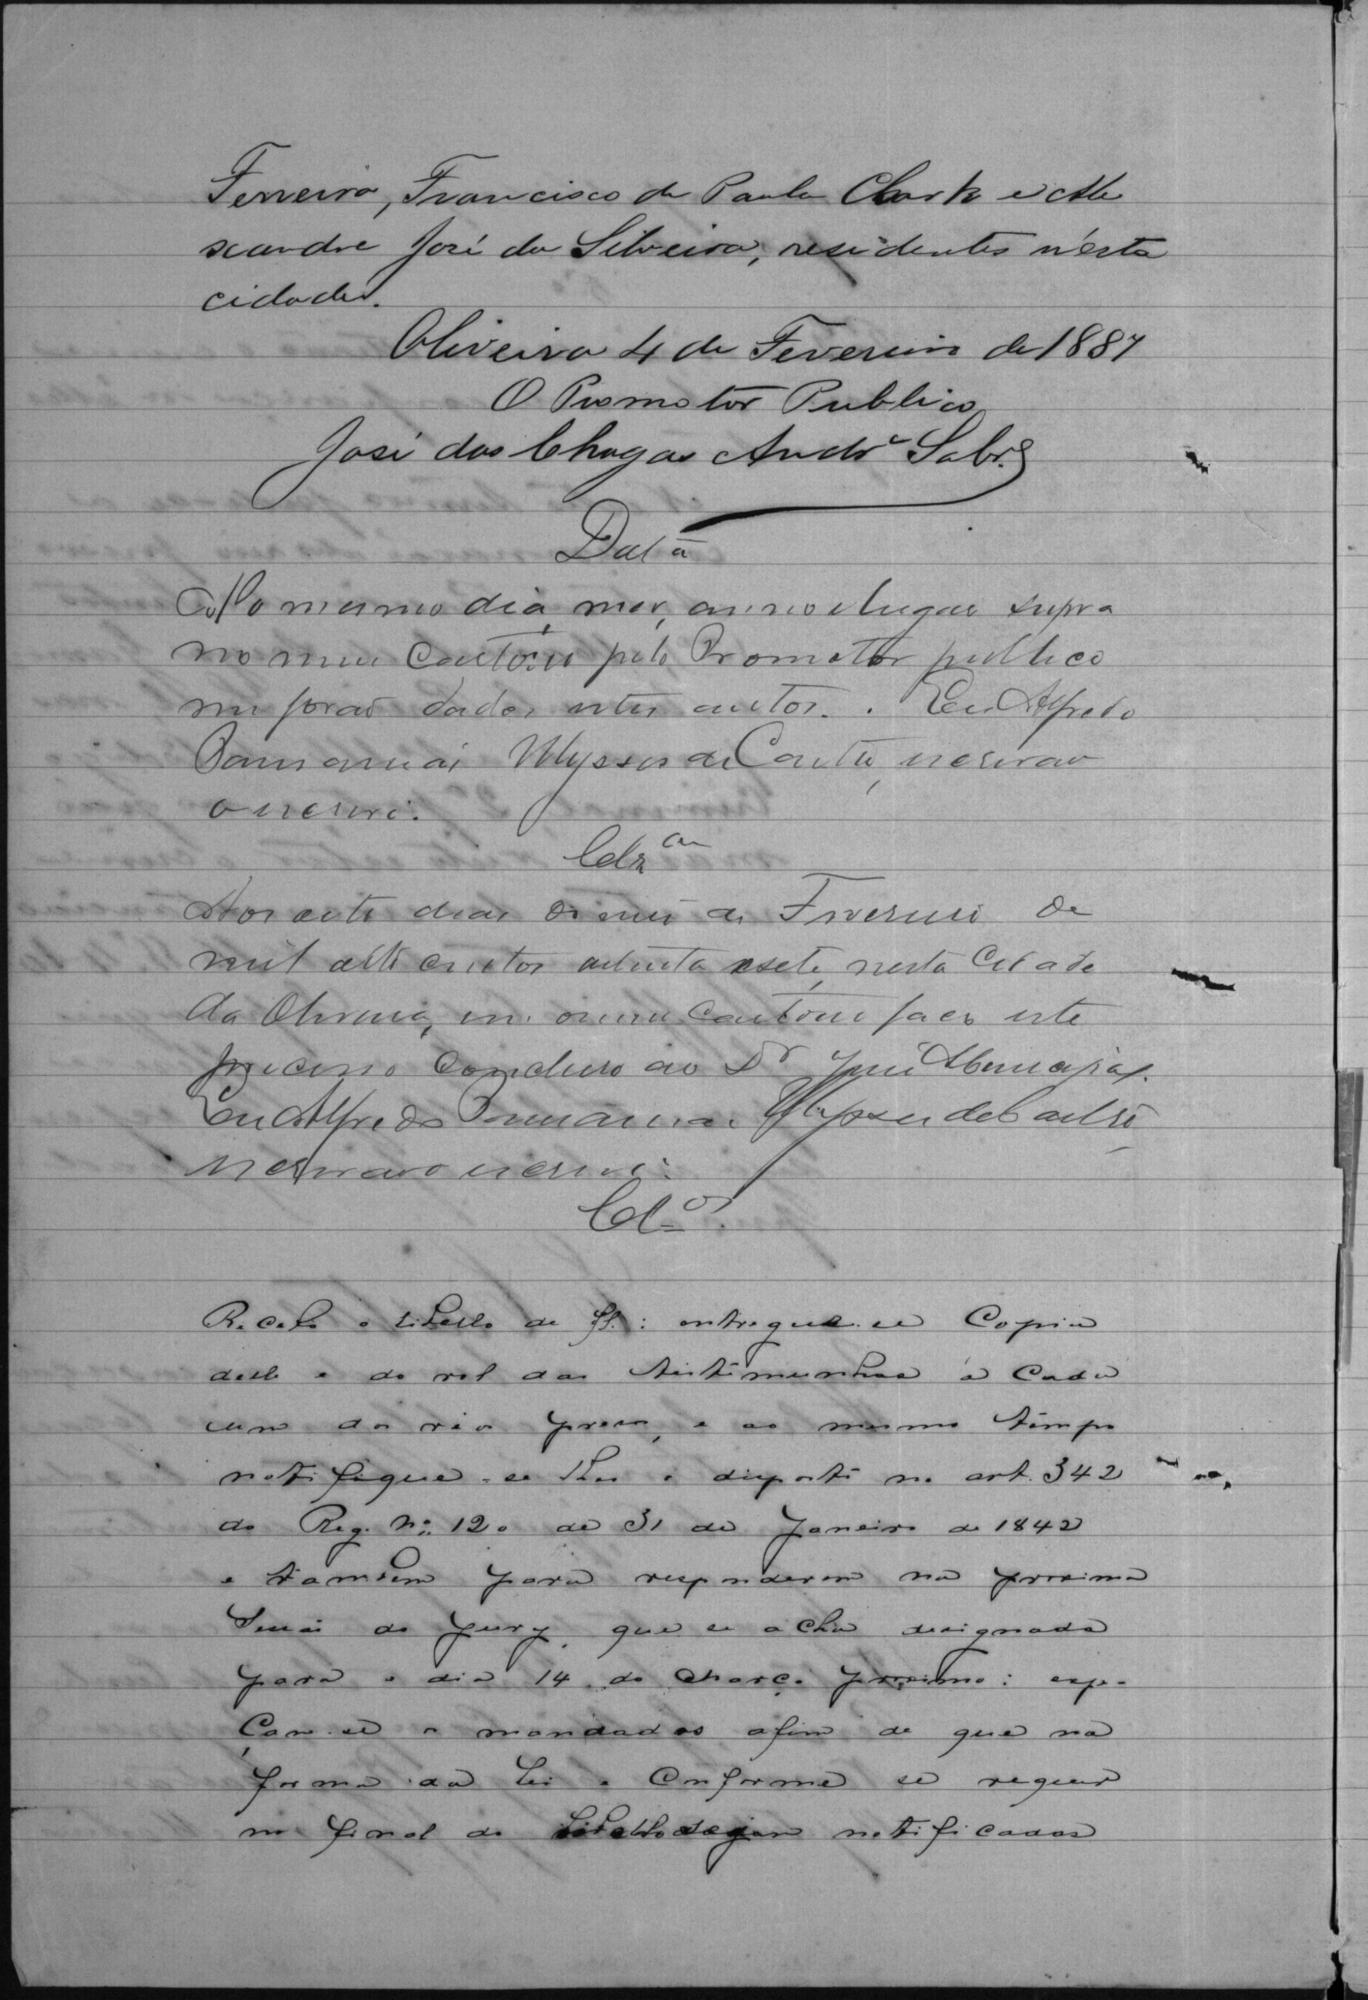 Ferreira, Francisco de Paula Clark e Ale
xandre José da Silveira, residentes n'esta
cidade.
Oliveira 4 de Fevereiro de 1887
O Promotor Publico
José das Chagas Andr.e Sobr.o
Data
No mesmo dia, mez, anno e lugar supra
no meu Cartorio pelo Promotor publico
me forão dados estes autos. Eu Alfredo
Ulysses de Castro, escrivão
o escrevi.
Clz.am
Aos oito dias do mez de Fevereiro de
mil oito centos oitenta e sete, nesta Cidade
da Oliveira, em o meu Cartorio faço este
processo concluso ao Dr José
Eu Alfredo Ulysses de Castro
escrivão escrevi.
Cl.os
Recebo o libello de fl.: entregue-se Copia
deste e do rol das testimunhas á Cada
um dos réos presos, e ao mesmo tempo
notifique-se-lhes o disposto no art. 342
do Reg. Nº 120 de 31 de Janeiro de 1842
e tambem para responderem na proxima
Sessão do Jury, que se acha designada
para o dia 14 de Março proximo: expe-
çam-se os mandados afim de que na
forma da Lei e Conforme se requer
no final do libello sejam notificados